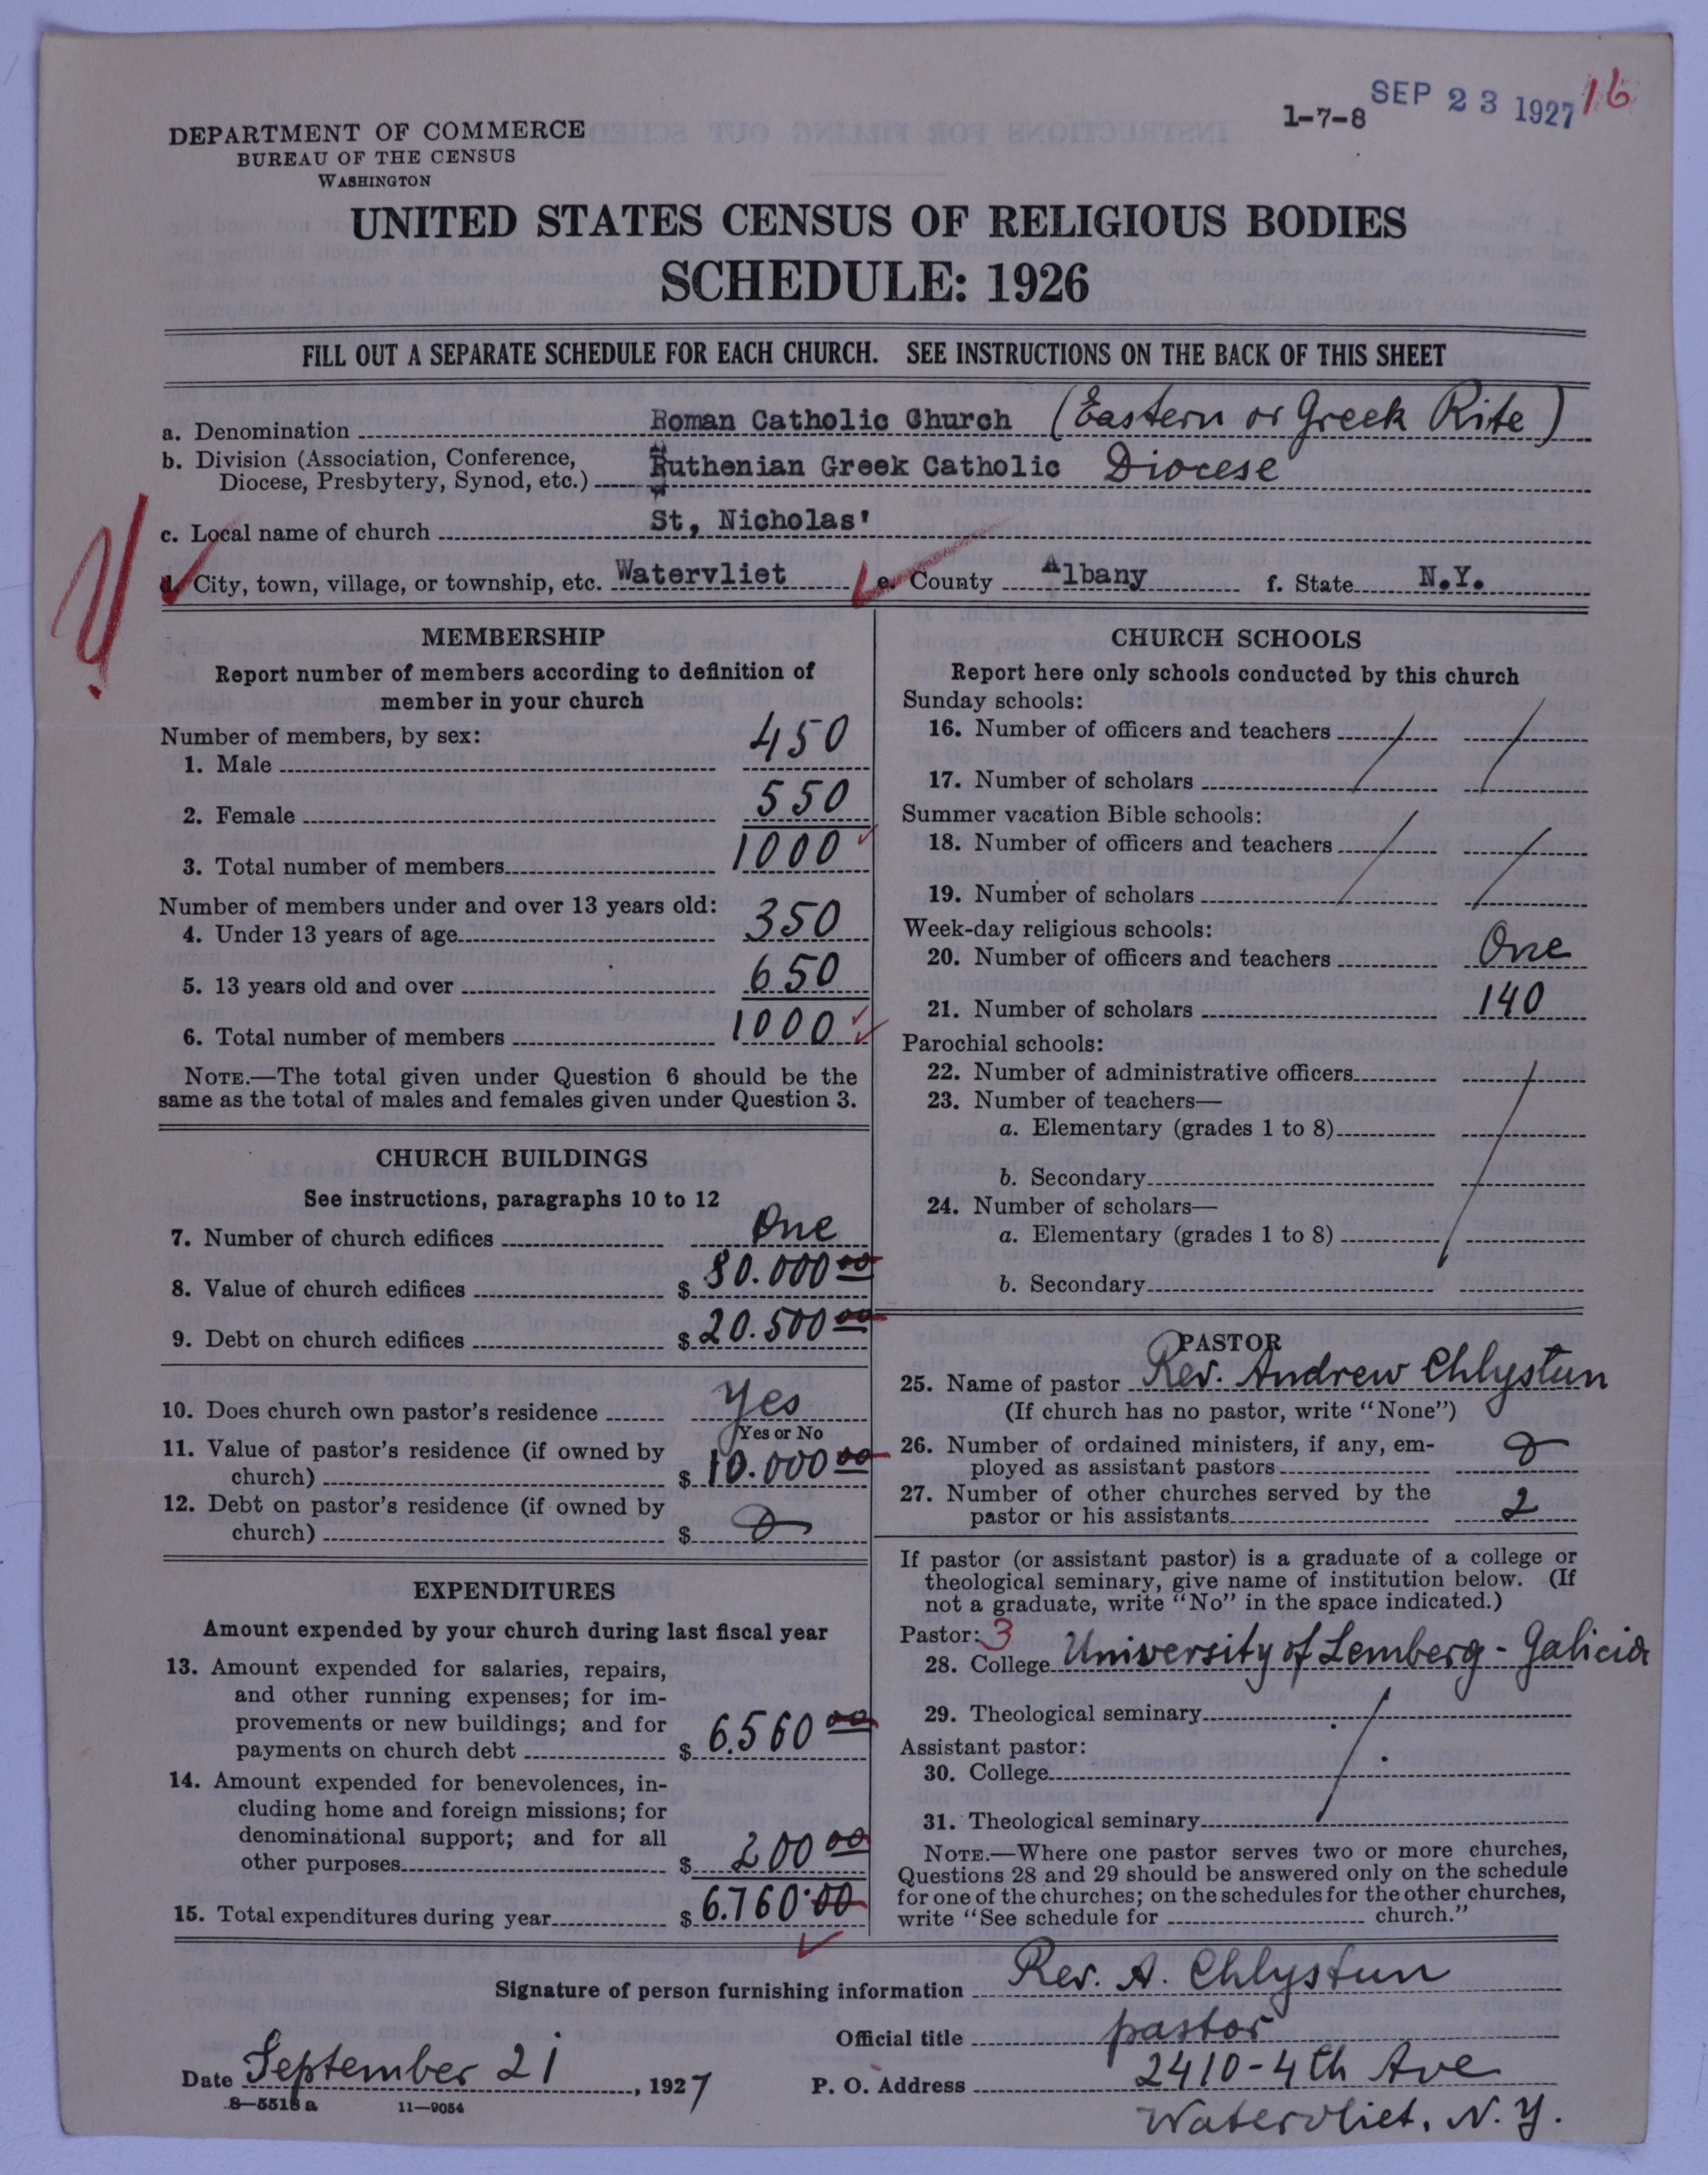 1-7-8 SEP 23 1927 16
DEPARTMENT OF COMMERCE
BUREAU OF THE CENSUS
WASHINGTON
UNITED STATES CENSUS OF RELIGIOUS BODIES
SCHEDULE: 1926
FILL OUT A SEPARATE SCHEDULE FOR EACH CHURCH. SEE INSTRUCTIONS ON THE BACK OF THIS SHEET
a. Denomination Roman Catholic Church (Eastern or Greek Rite)
b. Division (Association, Conference,
Diocese, Presbytery, Synod, etc.) Ruthenian Greek Catholic Diocese
c. Local name of church St, Nicholas'
d. City, town, village, or township, etc. Watervliet e. County Albany f. State N.Y.
MEMBERSHIP
Report number of members according to definition of
member in your church
Number of members, by sex:
1. Male 450
2. Female 550
3. Total number of members 1000
Number of members under and over 13 years old:
4. Under 13 years of age 350
5. 13 years old and over 650
6. Total number of members 1000
NOTE.—The total given under Question 6 should be the
same as the total of males and females given under Question 3.
CHURCH BUILDINGS
See instructions, paragraphs 10 to 12
7. Number of church edifices One
8. Value of church edifices $ 80.000 00
9. Debt on church edifices $ 20.500 00
10. Does church own pastor's residence Yes
Yes or No
11. Value of pastor's residence (if owned by
church) $ 10.000 00
12. Debt on pastor's residence (if owned by
church) $ 0
EXPENDITURES
Amount expended by your church during last fiscal year
13. Amount expended for salaries, repairs,
and other running expenses; for im-
provements or new buildings; and for
payments on church debt $ 6.560 00
14. Amount expended for benevolences, in-
cluding home and foreign missions; for
denominational support; and for all
other purposes $ 200 00
15. Total expenditures during year $ 6.760.00
CHURCH SCHOOLS
Report here only schools conducted by this church
Sunday schools:
16. Number of officers and teachers
17. Number of scholars
Summer vacation Bible schools:
18. Number of officers and teachers
19. Number of scholars
Week-day religious schools:
20. Number of officers and teachers One
21. Number of scholars 140
Parochial schools:
22. Number of administrative officers
23. Number of teachers—
a. Elementary (grades 1 to 8)
b. Secondary
24. Number of scholars—
a. Elementary (grades 1 to 8)
b. Secondary
PASTOR
25. Name of pastor Rev. Andrew Chlystun
(If church has no pastor, write "None")
26. Number of ordained ministers, if any, em-
ployed as assistant pastors 0
27. Number of other churches served by the
pastor or his assistants 2
If pastor (or assistant pastor) is a graduate of a college or
theological seminary, give name of institution below. (If
not a graduate, write "No" in the space indicated.)
Pastor: 3
28. College University of Lemberg - Galicia
29. Theological seminary
Assistant pastor:
30. College
31. Theological seminary
NOTE.—Where one pastor serves two or more churches,
Questions 28 and 29 should be answered only on the schedule
for one of the churches; on the schedules for the other churches,
write "See schedule for church."
Signature of person furnishing information Rev. A. Chlystun
Official title pastor
Date September 21, 1927 P. O. Address 2410-4th Ave
8-5518 a 11-9054
Watervliet, N.Y.